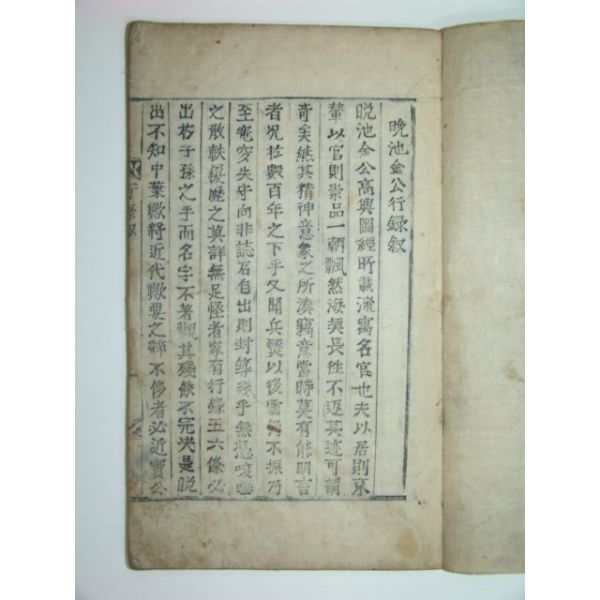 晩池金公行録叙
晩池金公高興圖經所載流寓名官也夫以居則京
輦以官則崇品一朝飄然海澨長徃不返其迹可謂
竒矣然其精神意象之所湊竊意當時莫有能明言
者况於數百年之下乎又聞兵燹以後雲仍不振乃
至竁穸失守向非誌石自出則封篿幾乎無憑嗟
之散軼履歷之莫詳無足怪者家有行錄五六條必
出於子孫之手而名字不著觀其殘缺不完决是晩
出不知中葉歟将近代歟要之辭不侈者必近實公